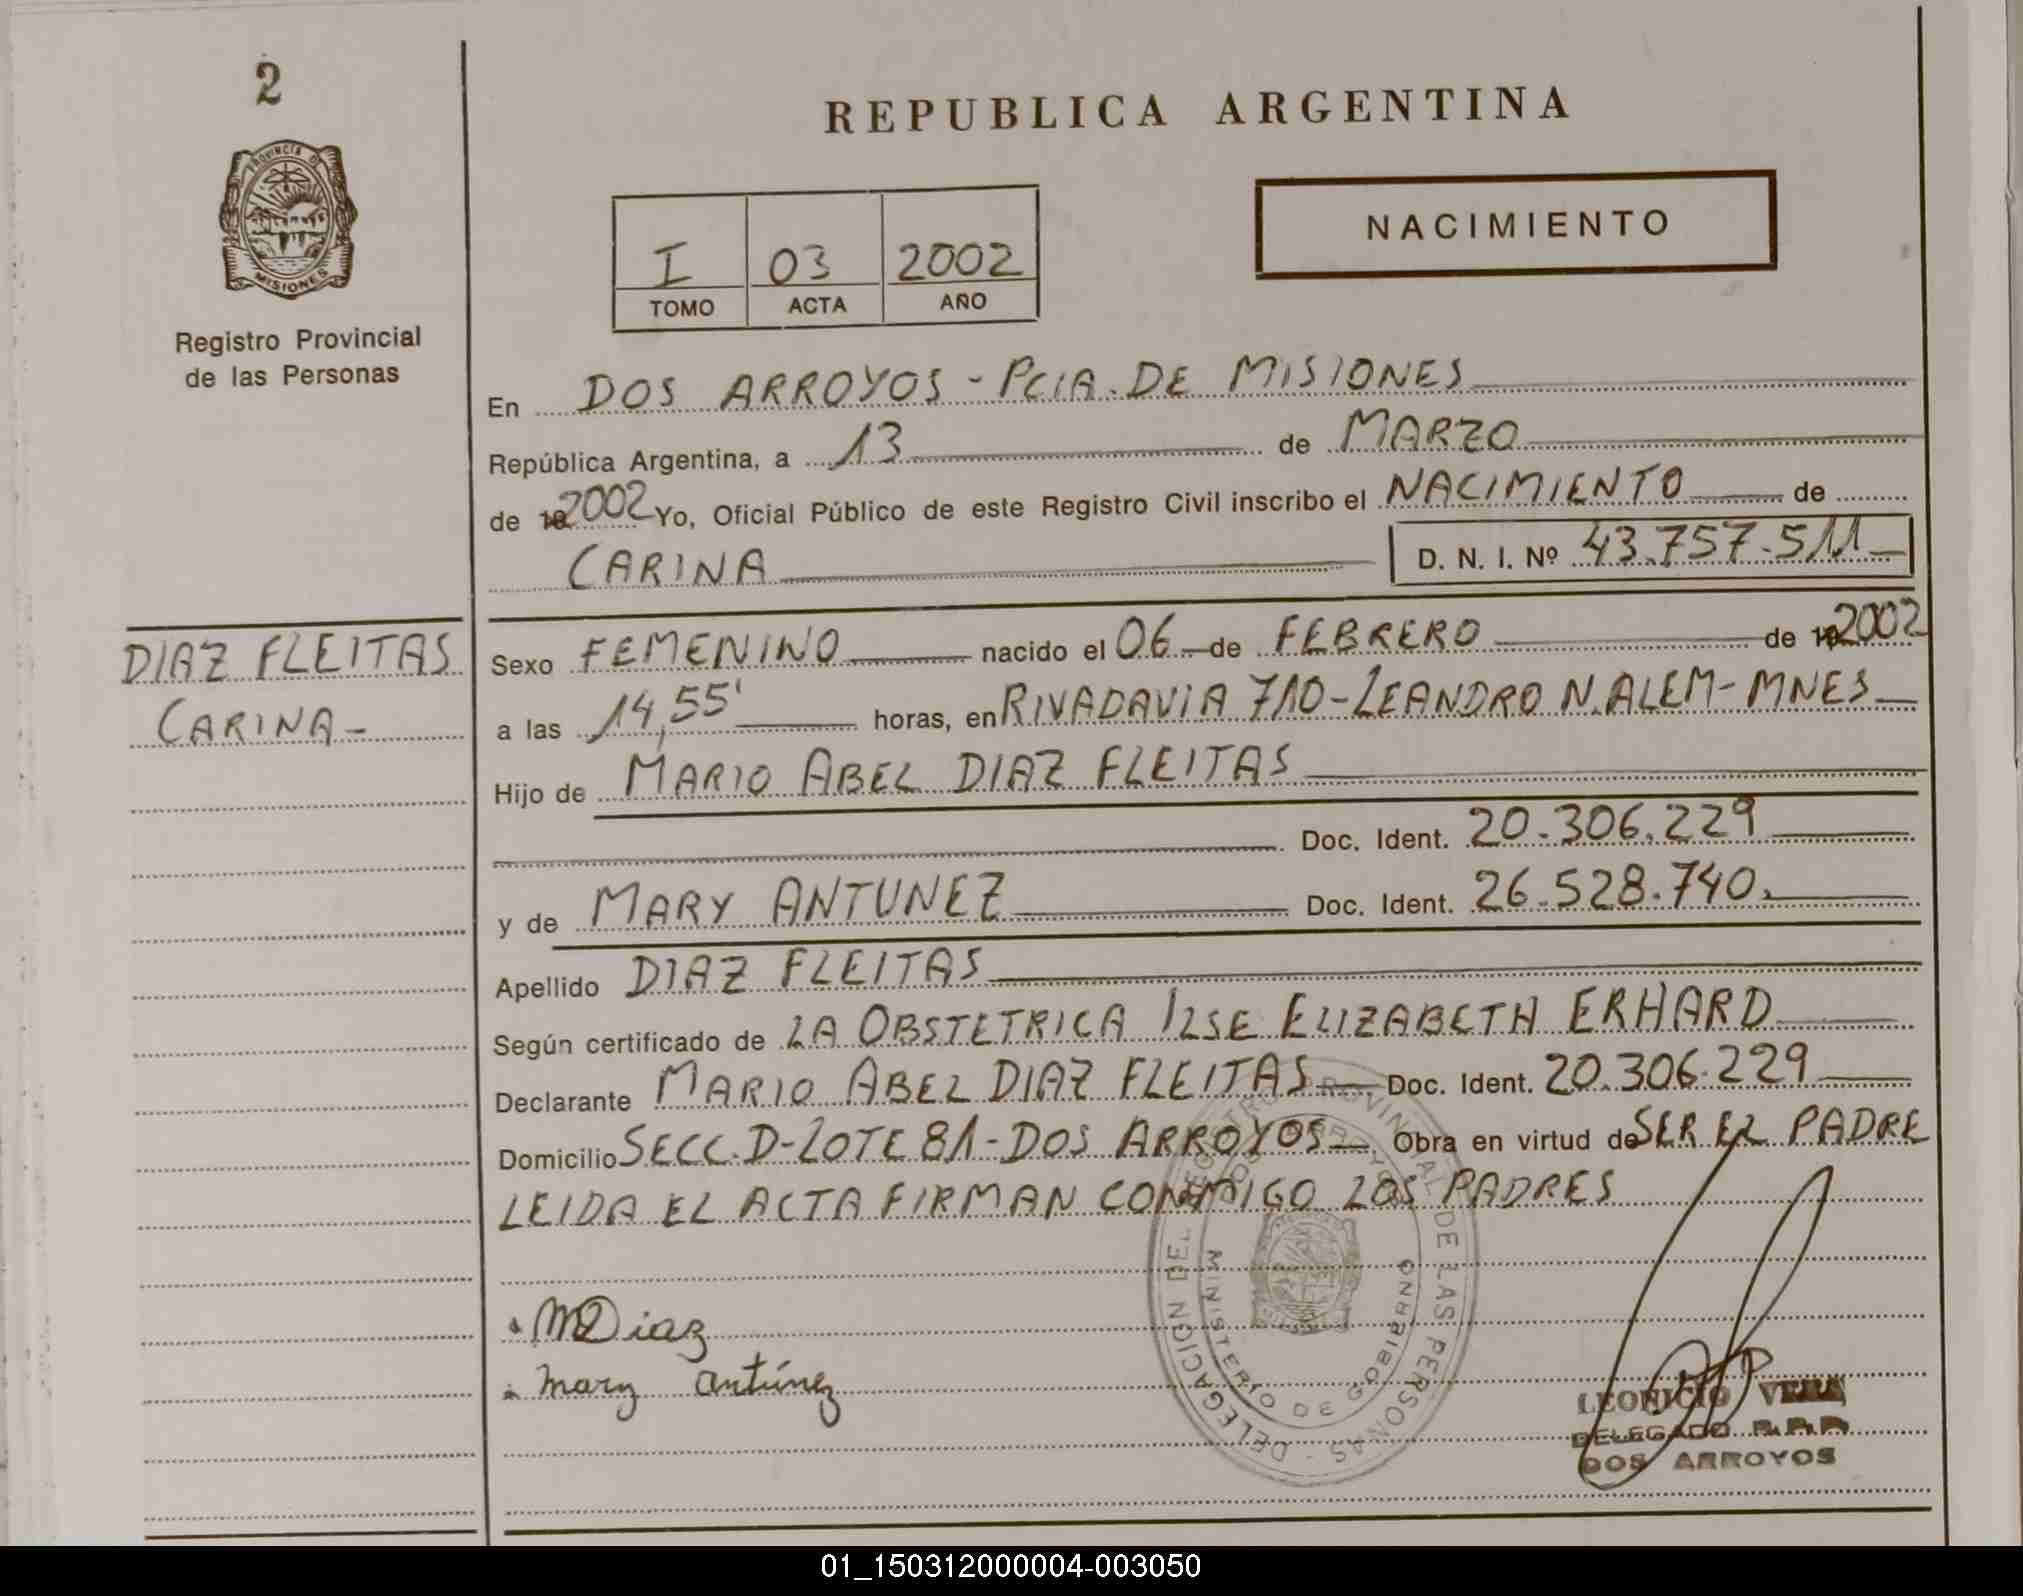 2
PROVINCIA D
MISIONES
Registro Provincial
de las Personas
REPUBLICA ARGENTINA
NACIMIENTO
I 03 2002
TOMO ACTA AÑO
En DOS ARROYOS - PCIA. DE MISIONES
República Argentina, a 13 de MARZO
de 2002 Yo, Oficial Público de este Registro Civil inscribo el NACIMIENTO de
CARINA D. N. I. Nº 43.757.511
DIAZ FLEITAS
CARINA -
Sexo FEMENINO nacido el 06 de FEBRERO de 2002
a las 14,55' horas, en RIVADAVIA 710 - LEANDRO N. ALEM - MNES
Hijo de MARIO ABEL DIAZ FLEITAS
Doc. Ident. 20.306.229
y de MARY ANTUNEZ Doc. Ident. 26.528.740.
Apellido DIAZ FLEITAS
Según certificado de LA OBSTETRICA ILSE ELIZABETH ERHARD
Declarante MARIO ABEL DIAZ FLEITAS Doc. Ident. 20.306.229
Domicilio SECC. D - LOTE 81 - DOS ARROYOS Obra en virtud de SER EL PADRE
LEIDA EL ACTA FIRMAN CONMIGO LOS PADRES
DELEGACION DEL REGISTRO PROVINCIAL DE LAS PERSONAS
DOS ARROYOS
MINISTERIO DE GOBIERNO
MDiaz
Mary Antúnez
LEONICIO VERA
DELEGADO R.P.P.
DOS ARROYOS
01_150312000004-003050